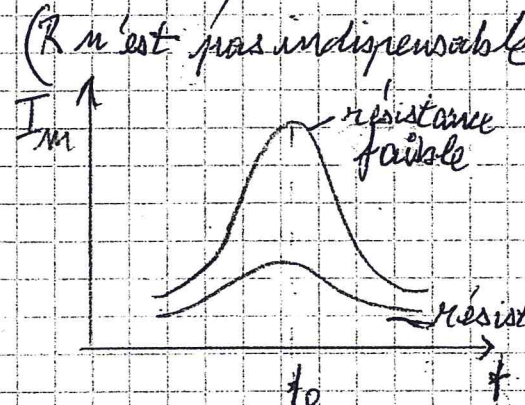 (R n'est pas indispensable
I_m
résistance
faible
résist
f_0
f